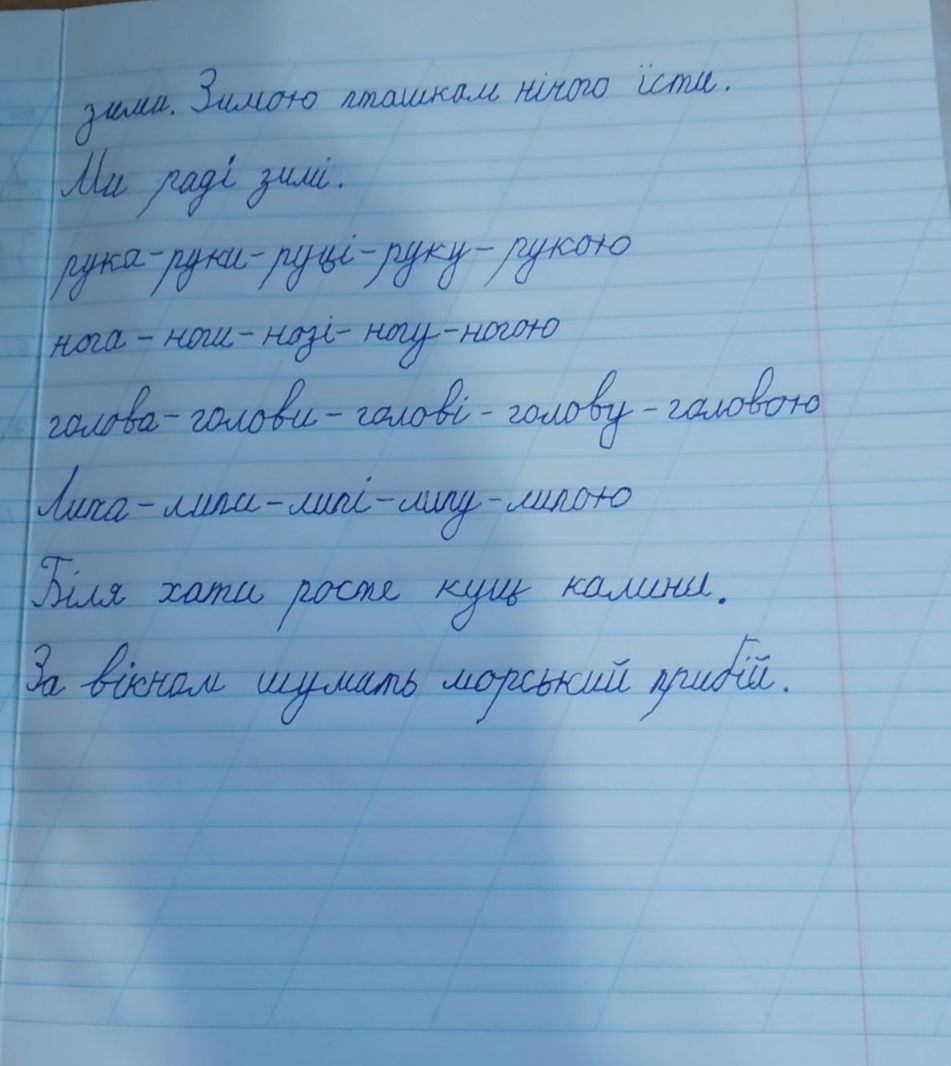 зими. Зимою пташкам нічого їсти.
Ми раді зимі.
рука-руки-руці-руку-рукою
нога-ноги-нозі-ногу-ногою
голова-голови-голові-голову-головою
Липа-липи-липі-липу-липою
Біля хати росте кущ калини.
За вікном шумить морський прибій.